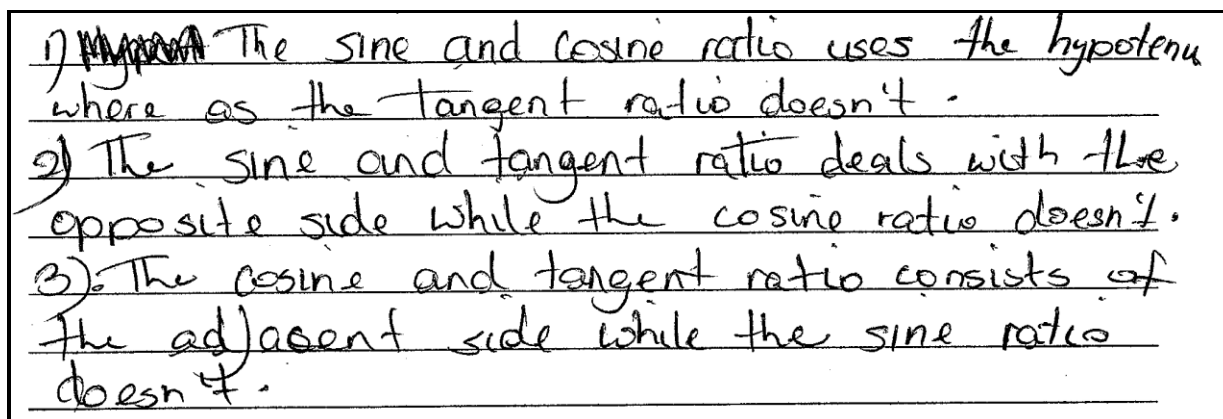 1) The sine and cosine ratio uses the hypotenu
where as the tangent ratio doesn't.
2) The sine and tangent ratio deals with the
opposite side while the cosine ratio doesn't.
3). The cosine and tangent ratio consists of
the adjacent side while the sine ratio
doesn't.